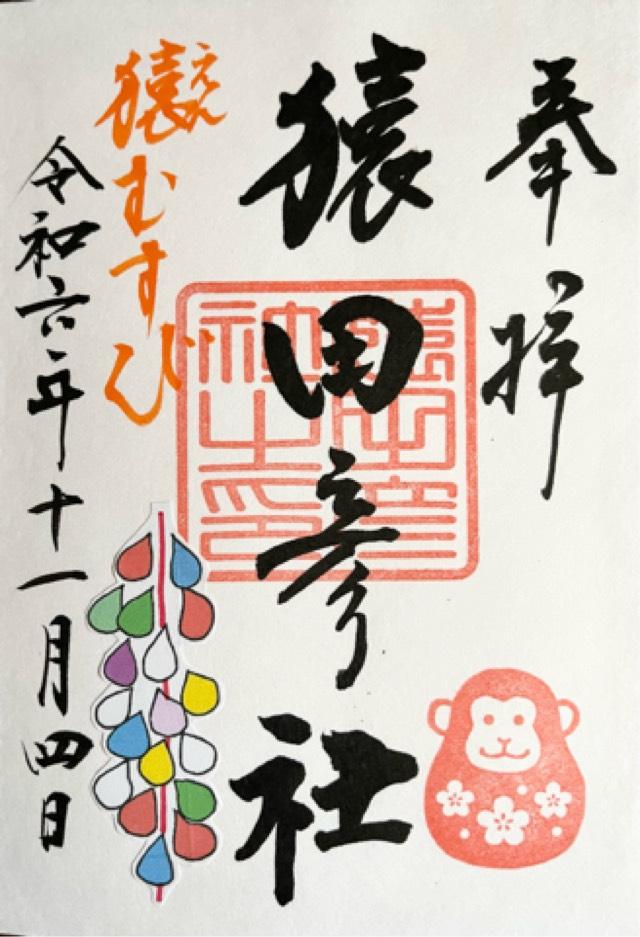 奉拝
猿田彦社
猿田彦
神社之印
猿むすび
えん
令和六年十一月四日